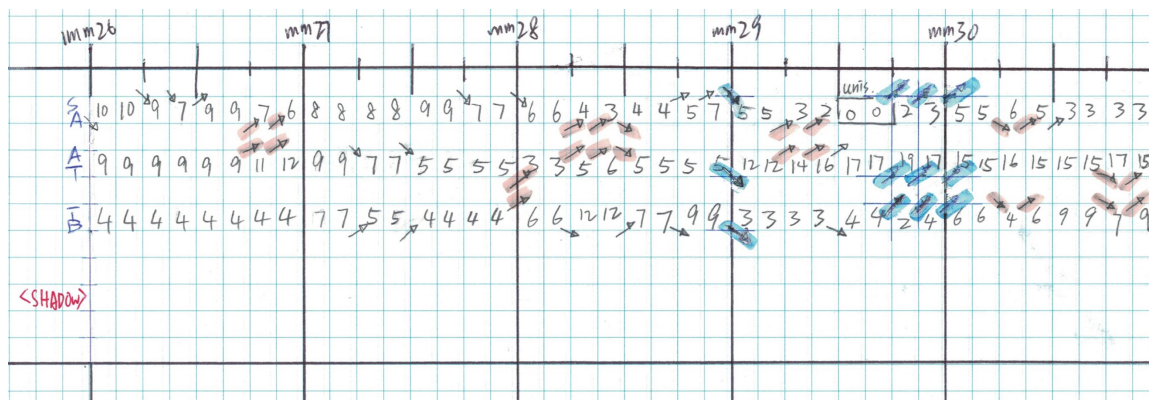 mm26 mm27 mm28 mm29 mm30
unis.
S/A 10 10 9 7 9 9 7 6 8 8 8 8 9 9 7 7 6 6 4 3 4 4 5 7 5 5 3 2 0 0 2 3 5 5 6 5 3 3 3 3
A/T 9 9 9 9 9 9 11 12 9 9 7 7 5 5 5 5 3 3 5 6 5 5 5 5 12 12 14 16 17 17 19 17 15 15 16 15 15 15 17 15
T/B 4 4 4 4 4 4 4 4 7 7 5 5 4 4 4 4 6 6 12 12 7 7 9 9 3 3 3 3 4 4 2 4 6 6 4 6 9 9 7 9
<SHADOW>